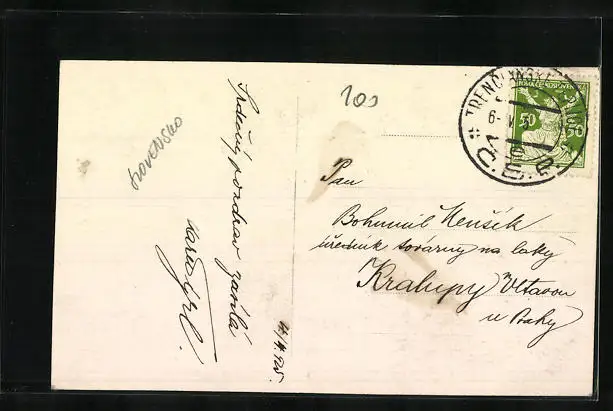 Slovensko
Srdečný pozdrav zasílá
100
TRENČIANSKE
50 50
Pan
Bohumil Menšík
úředník továrny na laky
Kralupy Vltavou
u Prahy